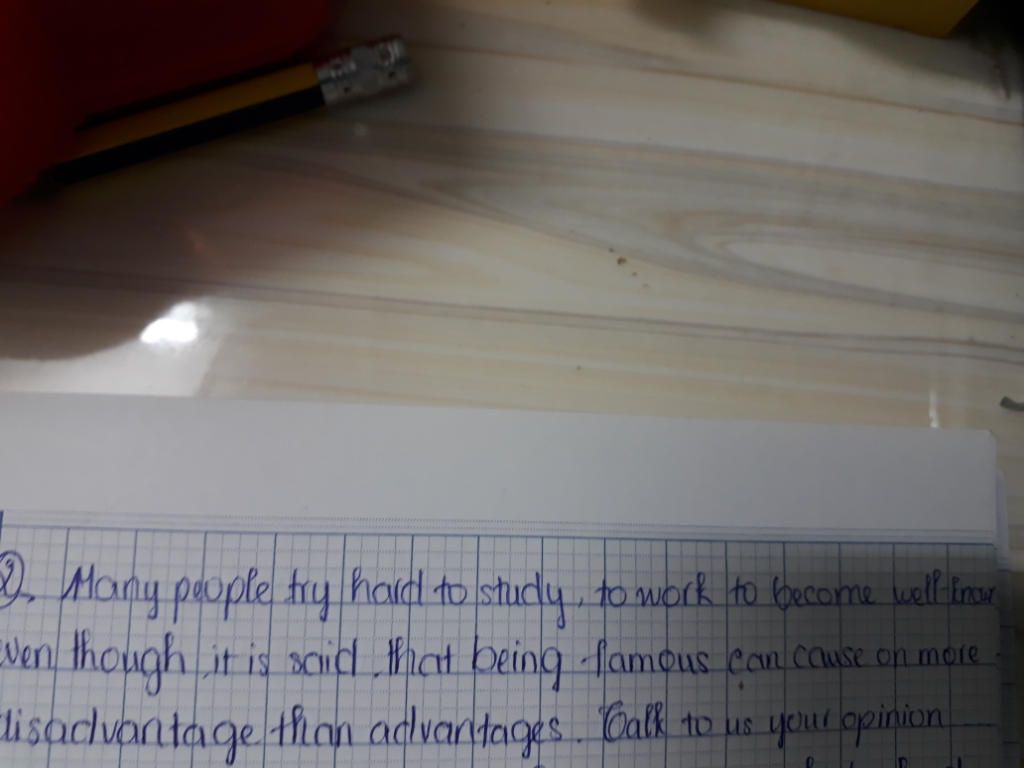 2. Many people try hard to study, to work to become well-know
ven though, it is said, that being famous can cause on more
disadvantage than advantages. Talk to us your opinion